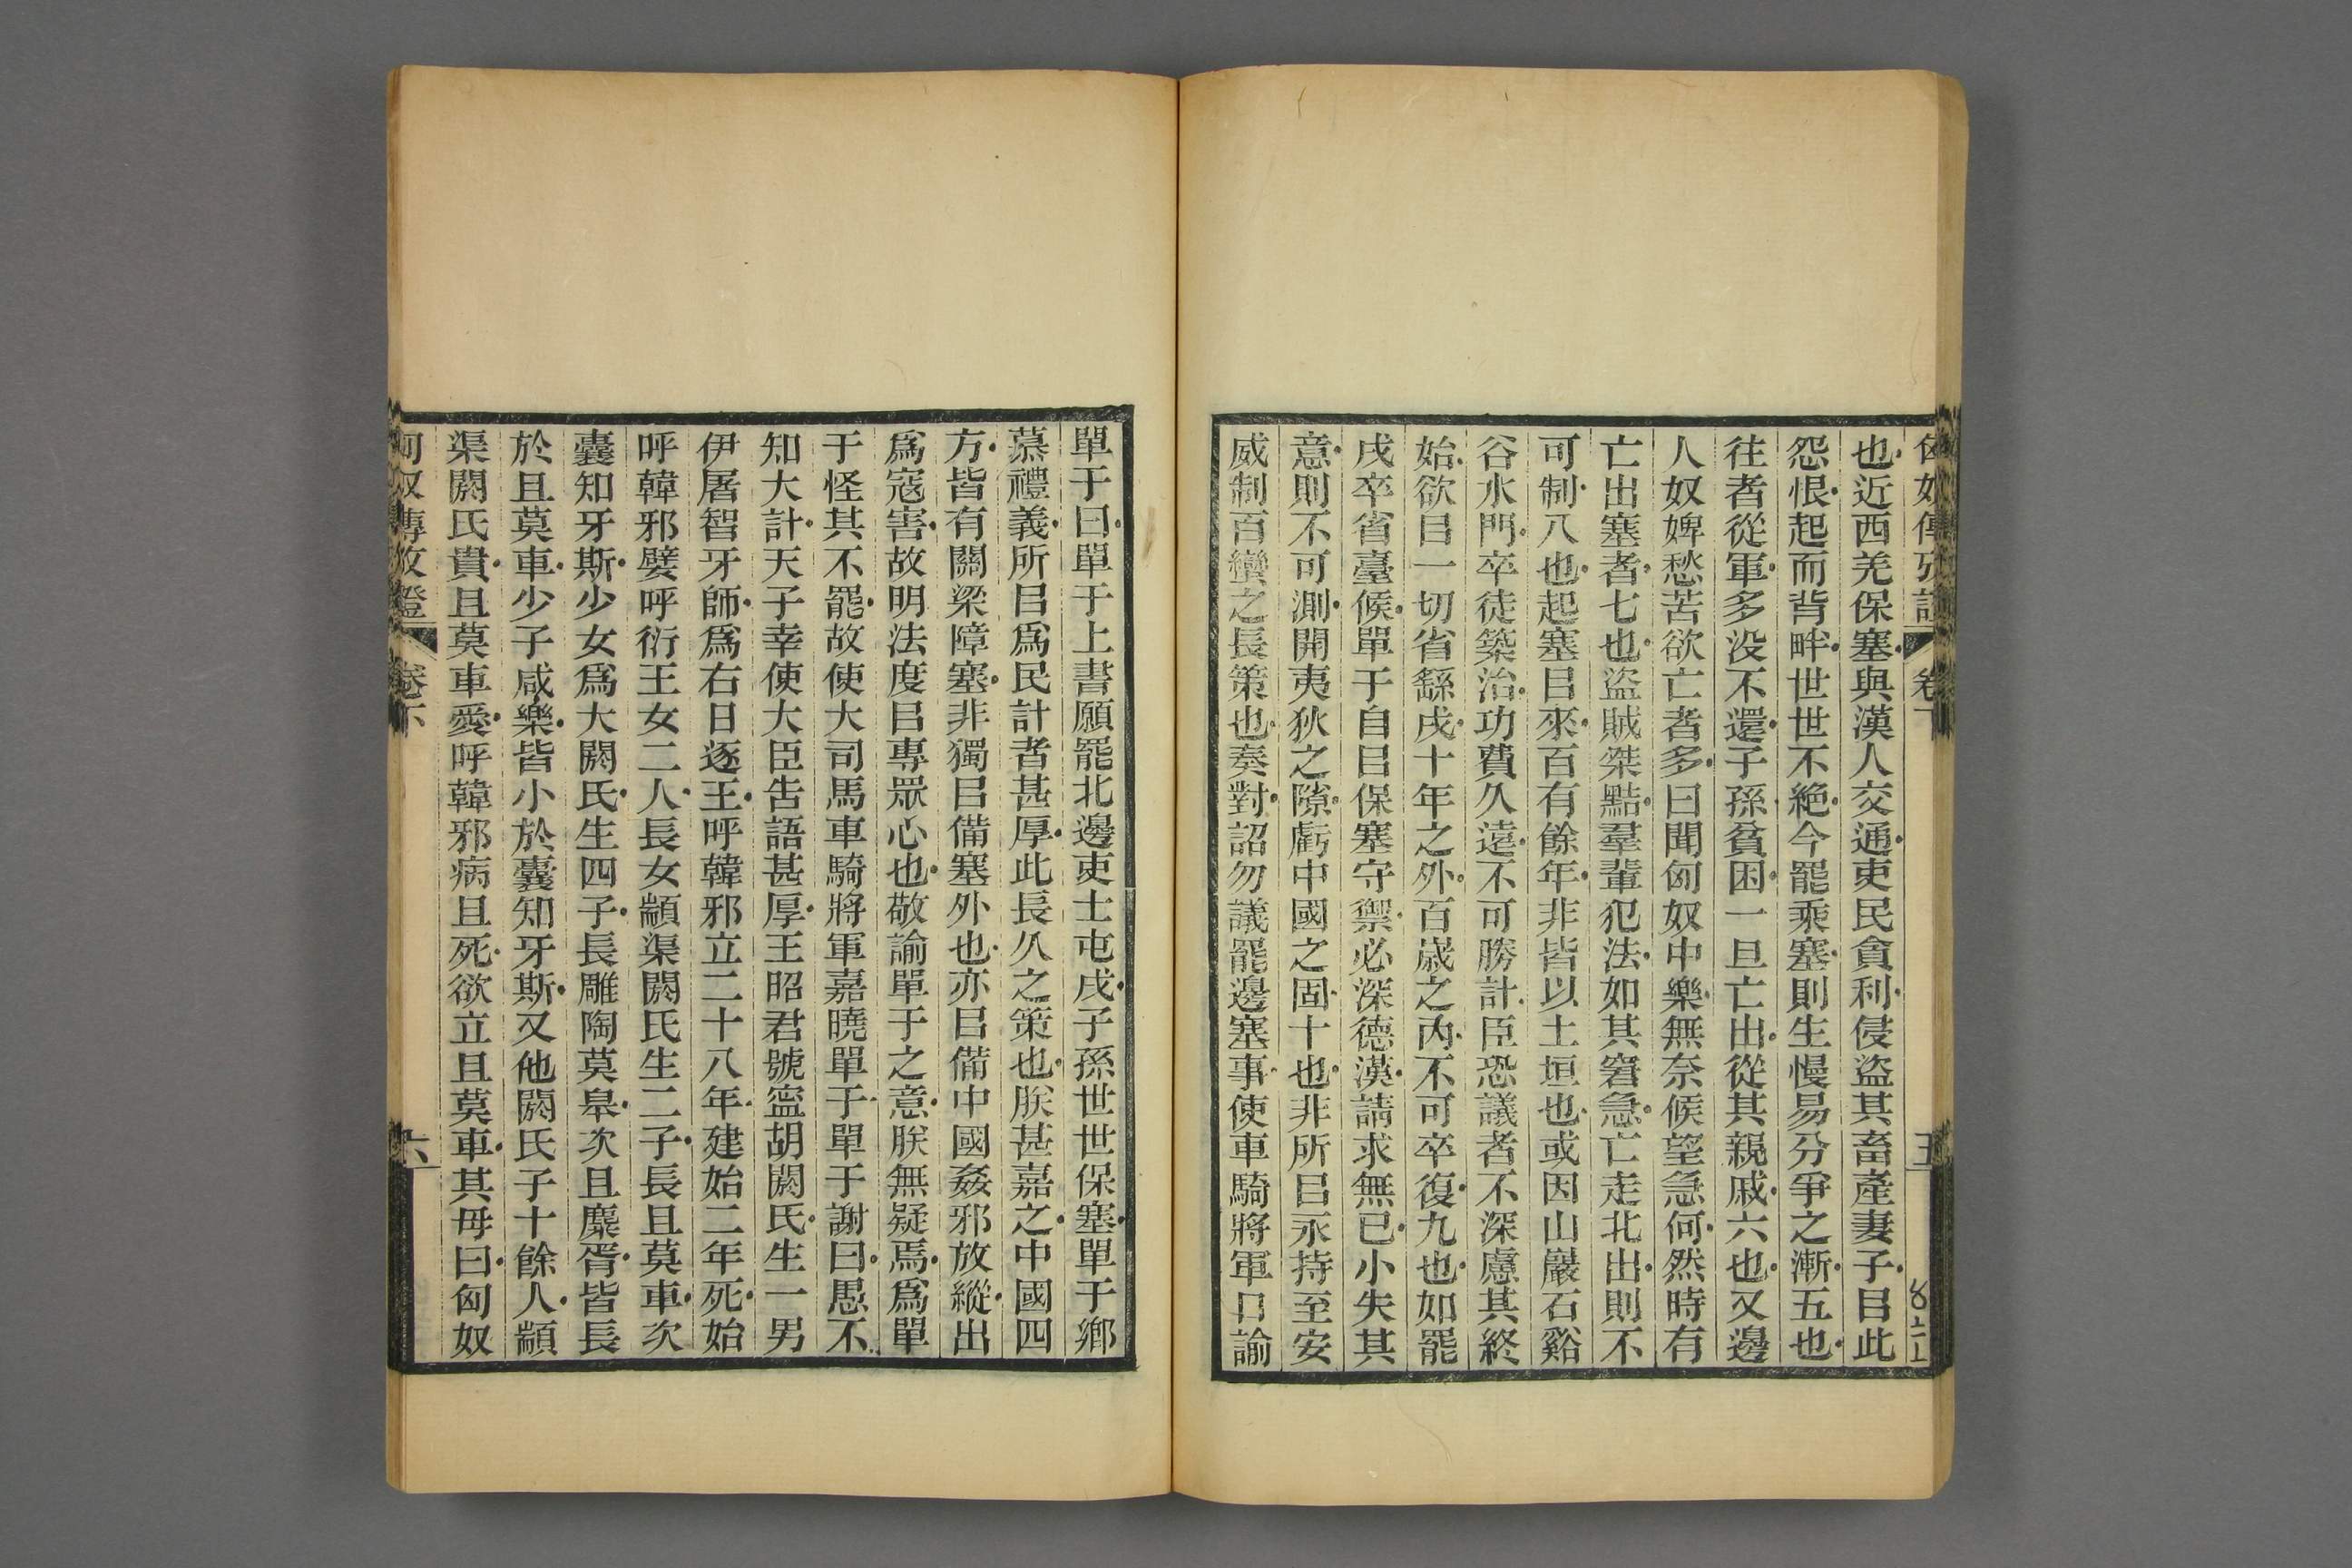 匈奴傳攷證 卷下 五
也近西羌保塞與漢人交通吏民貪利侵盜其畜產妻子㠯此
怨恨起而背畔世世不絕今罷乘塞則生慢易分爭之漸五也
往者從軍多没不還子孫貧困一旦亡出從其親戚六也又邊
人奴婢愁苦欲亡者多曰聞匈奴中樂無奈候望急何然時有
亡出塞者七也盜賊桀黠羣輩犯法如其窘急亡走北出則不
可制八也起塞㠯來百有餘年非皆以土垣也或因山巖石谿
谷水門卒徒築治功費久遠不可勝計臣恐議者不深慮其終
始欲㠯一切省繇戍十年之外百歲之內不可卒復九也如罷
戍卒省臺候單于自㠯保塞守禦必深德漢請求無已小失其
意則不可測開夷狄之隙虧中國之固十也非所㠯永持至安
威制百蠻之長策也奏對詔勿議罷邊塞事使車騎將軍口諭
單于曰單于上書願罷北邊吏士屯戍子孫世世保塞單于鄉
慕禮義所㠯爲民計者甚厚此長久之策也朕甚嘉之中國四
方皆有關梁障塞非獨㠯備塞外也亦㠯備中國姦邪放縱出
爲寇害故明法度㠯專眾心也敬諭單于之意朕無疑焉爲單
于怪其不罷故使大司馬車騎將軍嘉曉單于單于謝曰愚不
知大計天子幸使大臣告語甚厚王昭君號寍胡閼氏生一男
伊屠智牙師爲右日逐王呼韓邪立二十八年建始二年死始
呼韓邪嬖呼衍王女二人長女顓渠閼氏生二子長且莫車次
囊知牙斯少女爲大閼氏生四子長雕陶莫皋次且麋胥皆長
於且莫車少子咸樂皆小於囊知牙斯又他閼氏子十餘人顓
渠閼氏貴且莫車愛呼韓邪病且死欲立且莫車其母曰匈奴
匈奴傳攷證 卷下 六